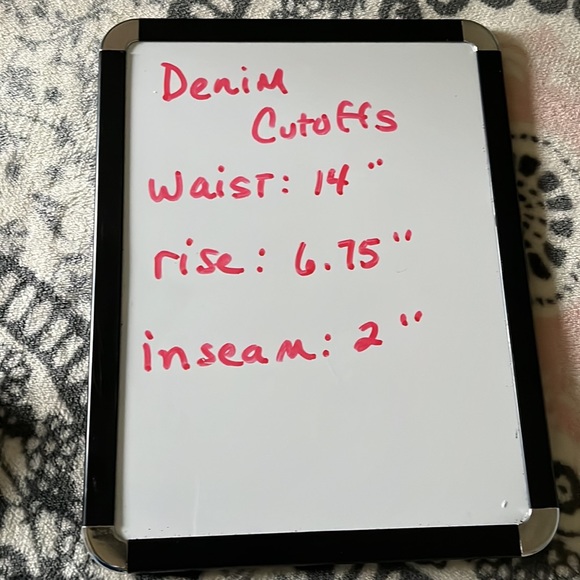 Denim
Cutoffs
Waist: 14"
rise: 6.75"
inseam: 2"